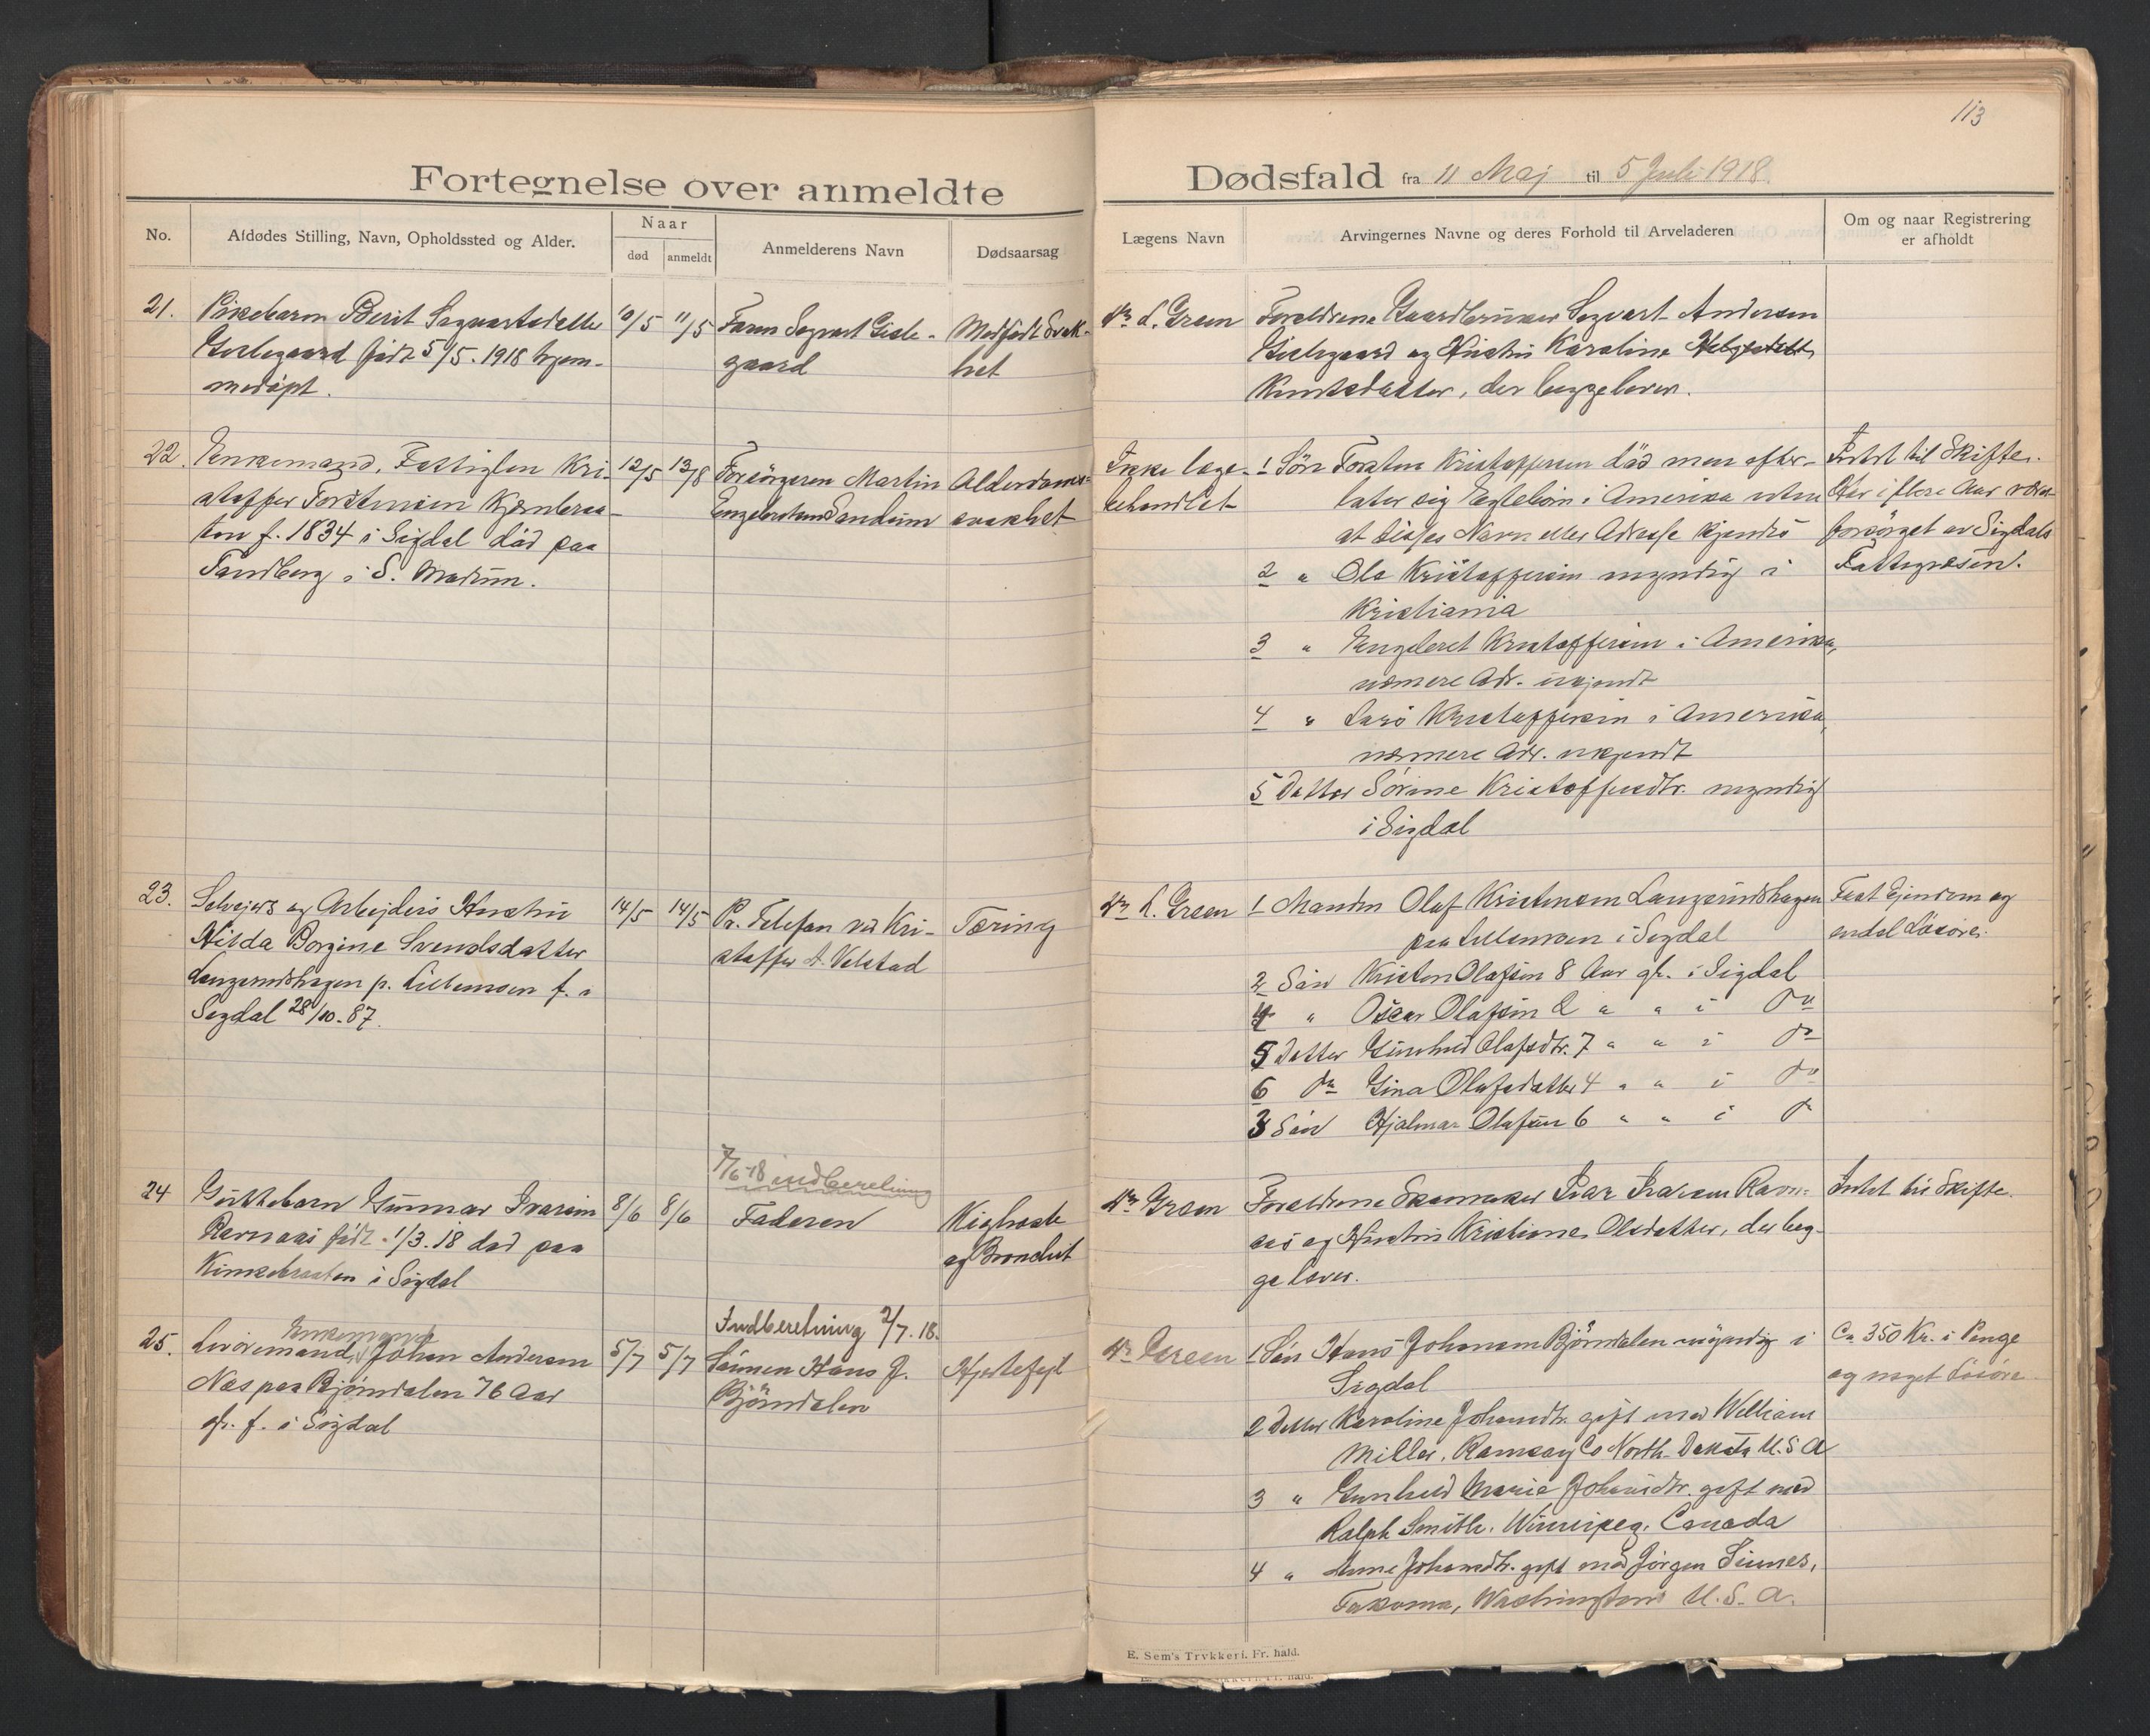 113
Fortegnelse over anmeldte Dødsfald fra 11 Maj til 5 Juli 1918.
No.
Afdødes Stilling, Navn, Opholdssted og Alder.
Naar
død
anmeldt
Anmelderens Navn
Dødsaarsag
Lægens Navn
Arvingernes Navne og deres Forhold til Arveladeren
Om og naar Registrering
er afholdt
21.
Pikebarn Berit Sagvartsdatter
født 5/5. 1918 hjem-
medöpt.
10/5
11/5
Faren Sagvart Gisle-
gaard
Medfödt Svak-
het
Dr. L. Green
Foreldrene Gaardbruker Sagvart Andersen
og Hustru Karoline
Knutsdatter, der begge lever.
22.
Enkemand, Fattiglem Kri-
stoffer Torstensen
f. 1834 i Sigdal död paa
Sandberg i S. Modum.
12/5
13/8
Forsörgeren Martin
Engebretsen Sandum
Alderdoms-
svakhet
Ikke læge-
behandlet
1 Sön Torsten Kristoffersen död men efter-
later sig Ægtebörn i Amerika uten
at disses Navn eller Adresse kjendes
2 " Ole Kristoffersen myndig i
Kristiania
3 " Engebret Kristoffersen i Amerika,
nærmere Adr. ukjendt
4 " Lars Kristoffersen i Amerika,
nærmere Adr. ukjendt
5 Datter Sörine Kristoffersdtr. myndig
i Sigdal
Intet til Skifte.
Har i flere Aar været
forsörget av Sigdals
Fattigvæsen.
23.
Selvejer og Arbejders Hustru
Hilda Borgine Svendsdatter
Langerudshagen p. Lillemoen f. i
Sigdal 28/10-87.
14/5
14/5
Pr. Telefon ved Kri-
stoffer A. Velstad
Tæring
Dr. L. Green
1 Manden Olaf Kristensen Langerudshagen
paa Lillemoen i Sigdal
2 Sön Kristen Olafsen 8 Aar gl. i Sigdal
4 " Oscar Olafsen 2 " " i Do
5 Datter Gunhild Olafsdtr. 7 " " i Do
6 Do Gina Olafsdatter 4 " " i Do
3 Sön Hjalmar Olafsen 6 " " i Do
Fast Ejendom og
endel Lösöre.
7/6-18 indberetning
24
Guttebarn Gunnar Ivarsen
Ravnaas födt 1/3. 18 död paa
i Sigdal
8/6
8/6
Faderen
Kighoste
og Bronchit
Dr. Green
Foreldrene Skomaker Ivar Ivarsen Ravn-
aas og Hustru Kristiane Olsdatter, der beg-
ge lever.
Intet til Skifte.
Indberetning 2/7. 18.
25.
Enkemand
Livöremand, Johan Andersen
Næs paa Bjömdalen 76 Aar
gl. f. i Sigdal
5/7
5/7
Sönnen Hans J.
Björndalen
Hjertefejl
Dr. Green
1 Sön Hans Johansen Björndalen myndig i
Sigdal
2 Datter Karoline Johansdtr. gift med William
Miller, Ramsay Co North-Dakota U.S.A
3 " Gunhild Marie Johansdtr. gift med
Ralph Smith. Winnipeg, Canada
4 " Anne Johansdtr. gift med Jörgen
Takoma, Washington U.S.A.
Ca 350 Kr. i Penge
og noget Lösöre
E. Sem's Trykkeri. Fr.hald.